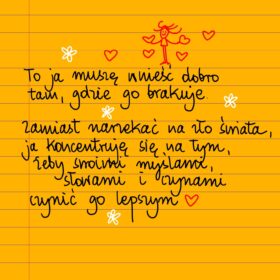 To ja muszę wnieść dobro
tam, gdzie go brakuje.
Zamiast narzekać na zło świata,
ja koncentruję się na tym,
żeby swoimi myślami,
słowami i czynami
czynić go lepszym